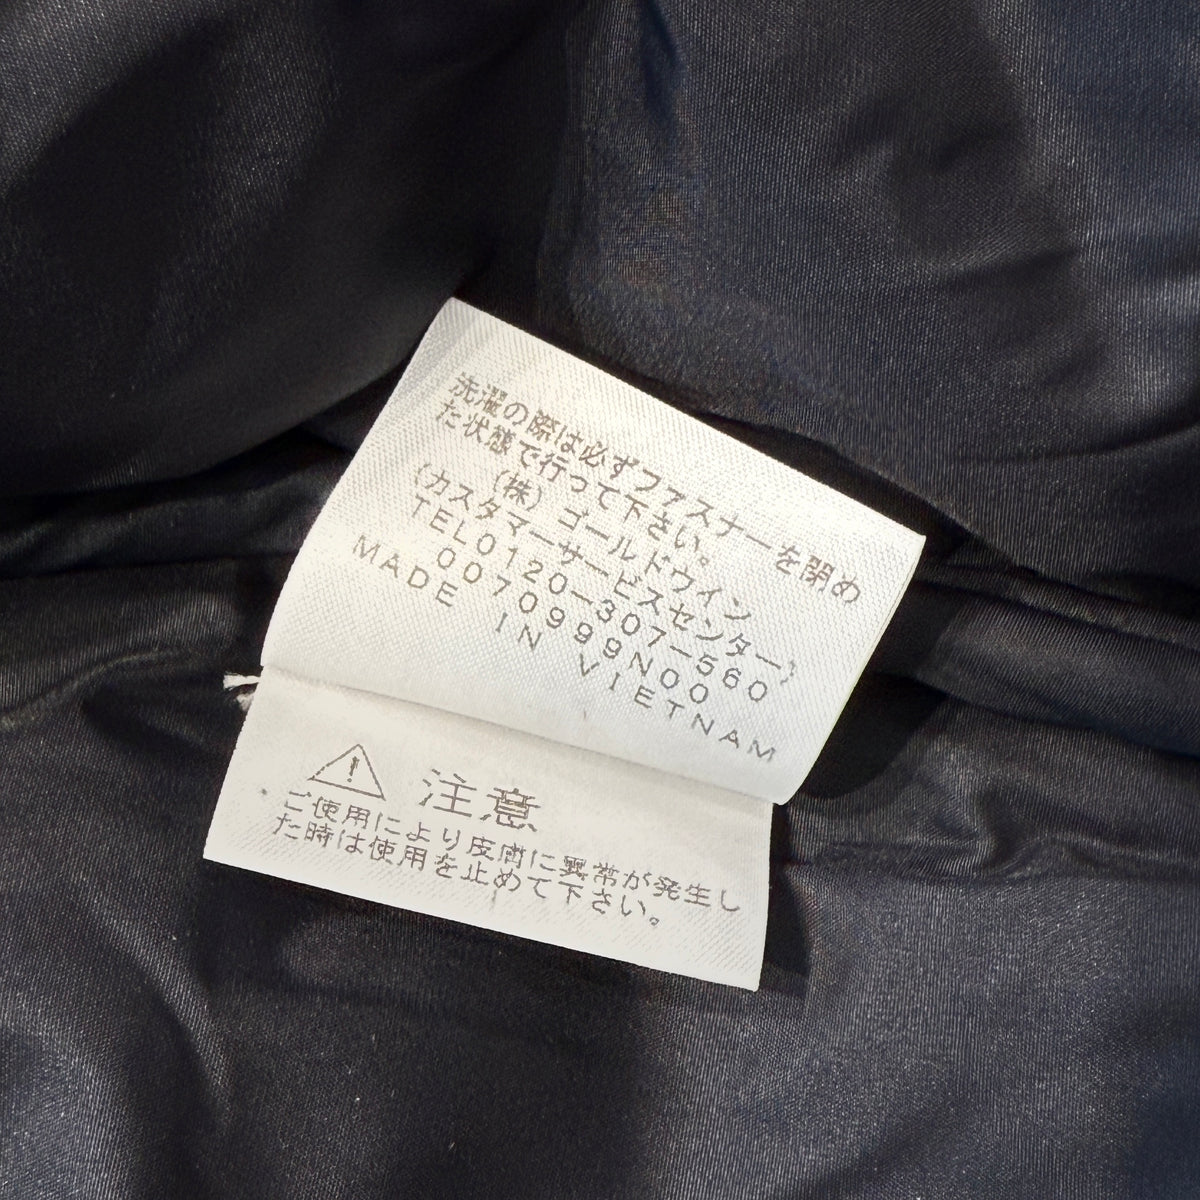 洗濯の際は必ずファスナーを閉め
た状態で行って下さい。
(株)ゴールドウイン
(カスタマーサービスセンター)
TEL0120-307-560
0070999N00
MADE IN VIETNAM
注意
ご使用により皮膚に異常が発生し
た時は使用を止めて下さい。